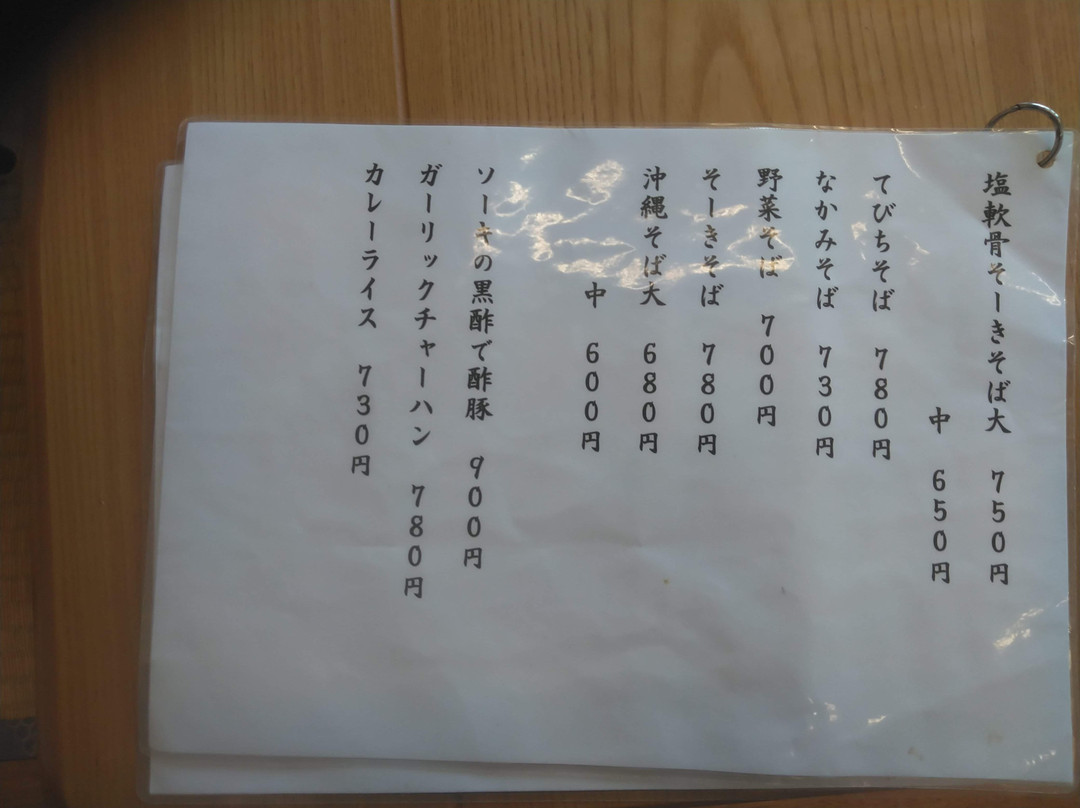 塩軟骨そーきそば大 750円
中 650円
てびちそば 780円
なかみそば 730円
野菜そば 700円
そーきそば 780円
沖縄そば大 680円
中 600円
ソーキの黒酢で酢豚 900円
ガーリックチャーハン 780円
カレーライス 730円